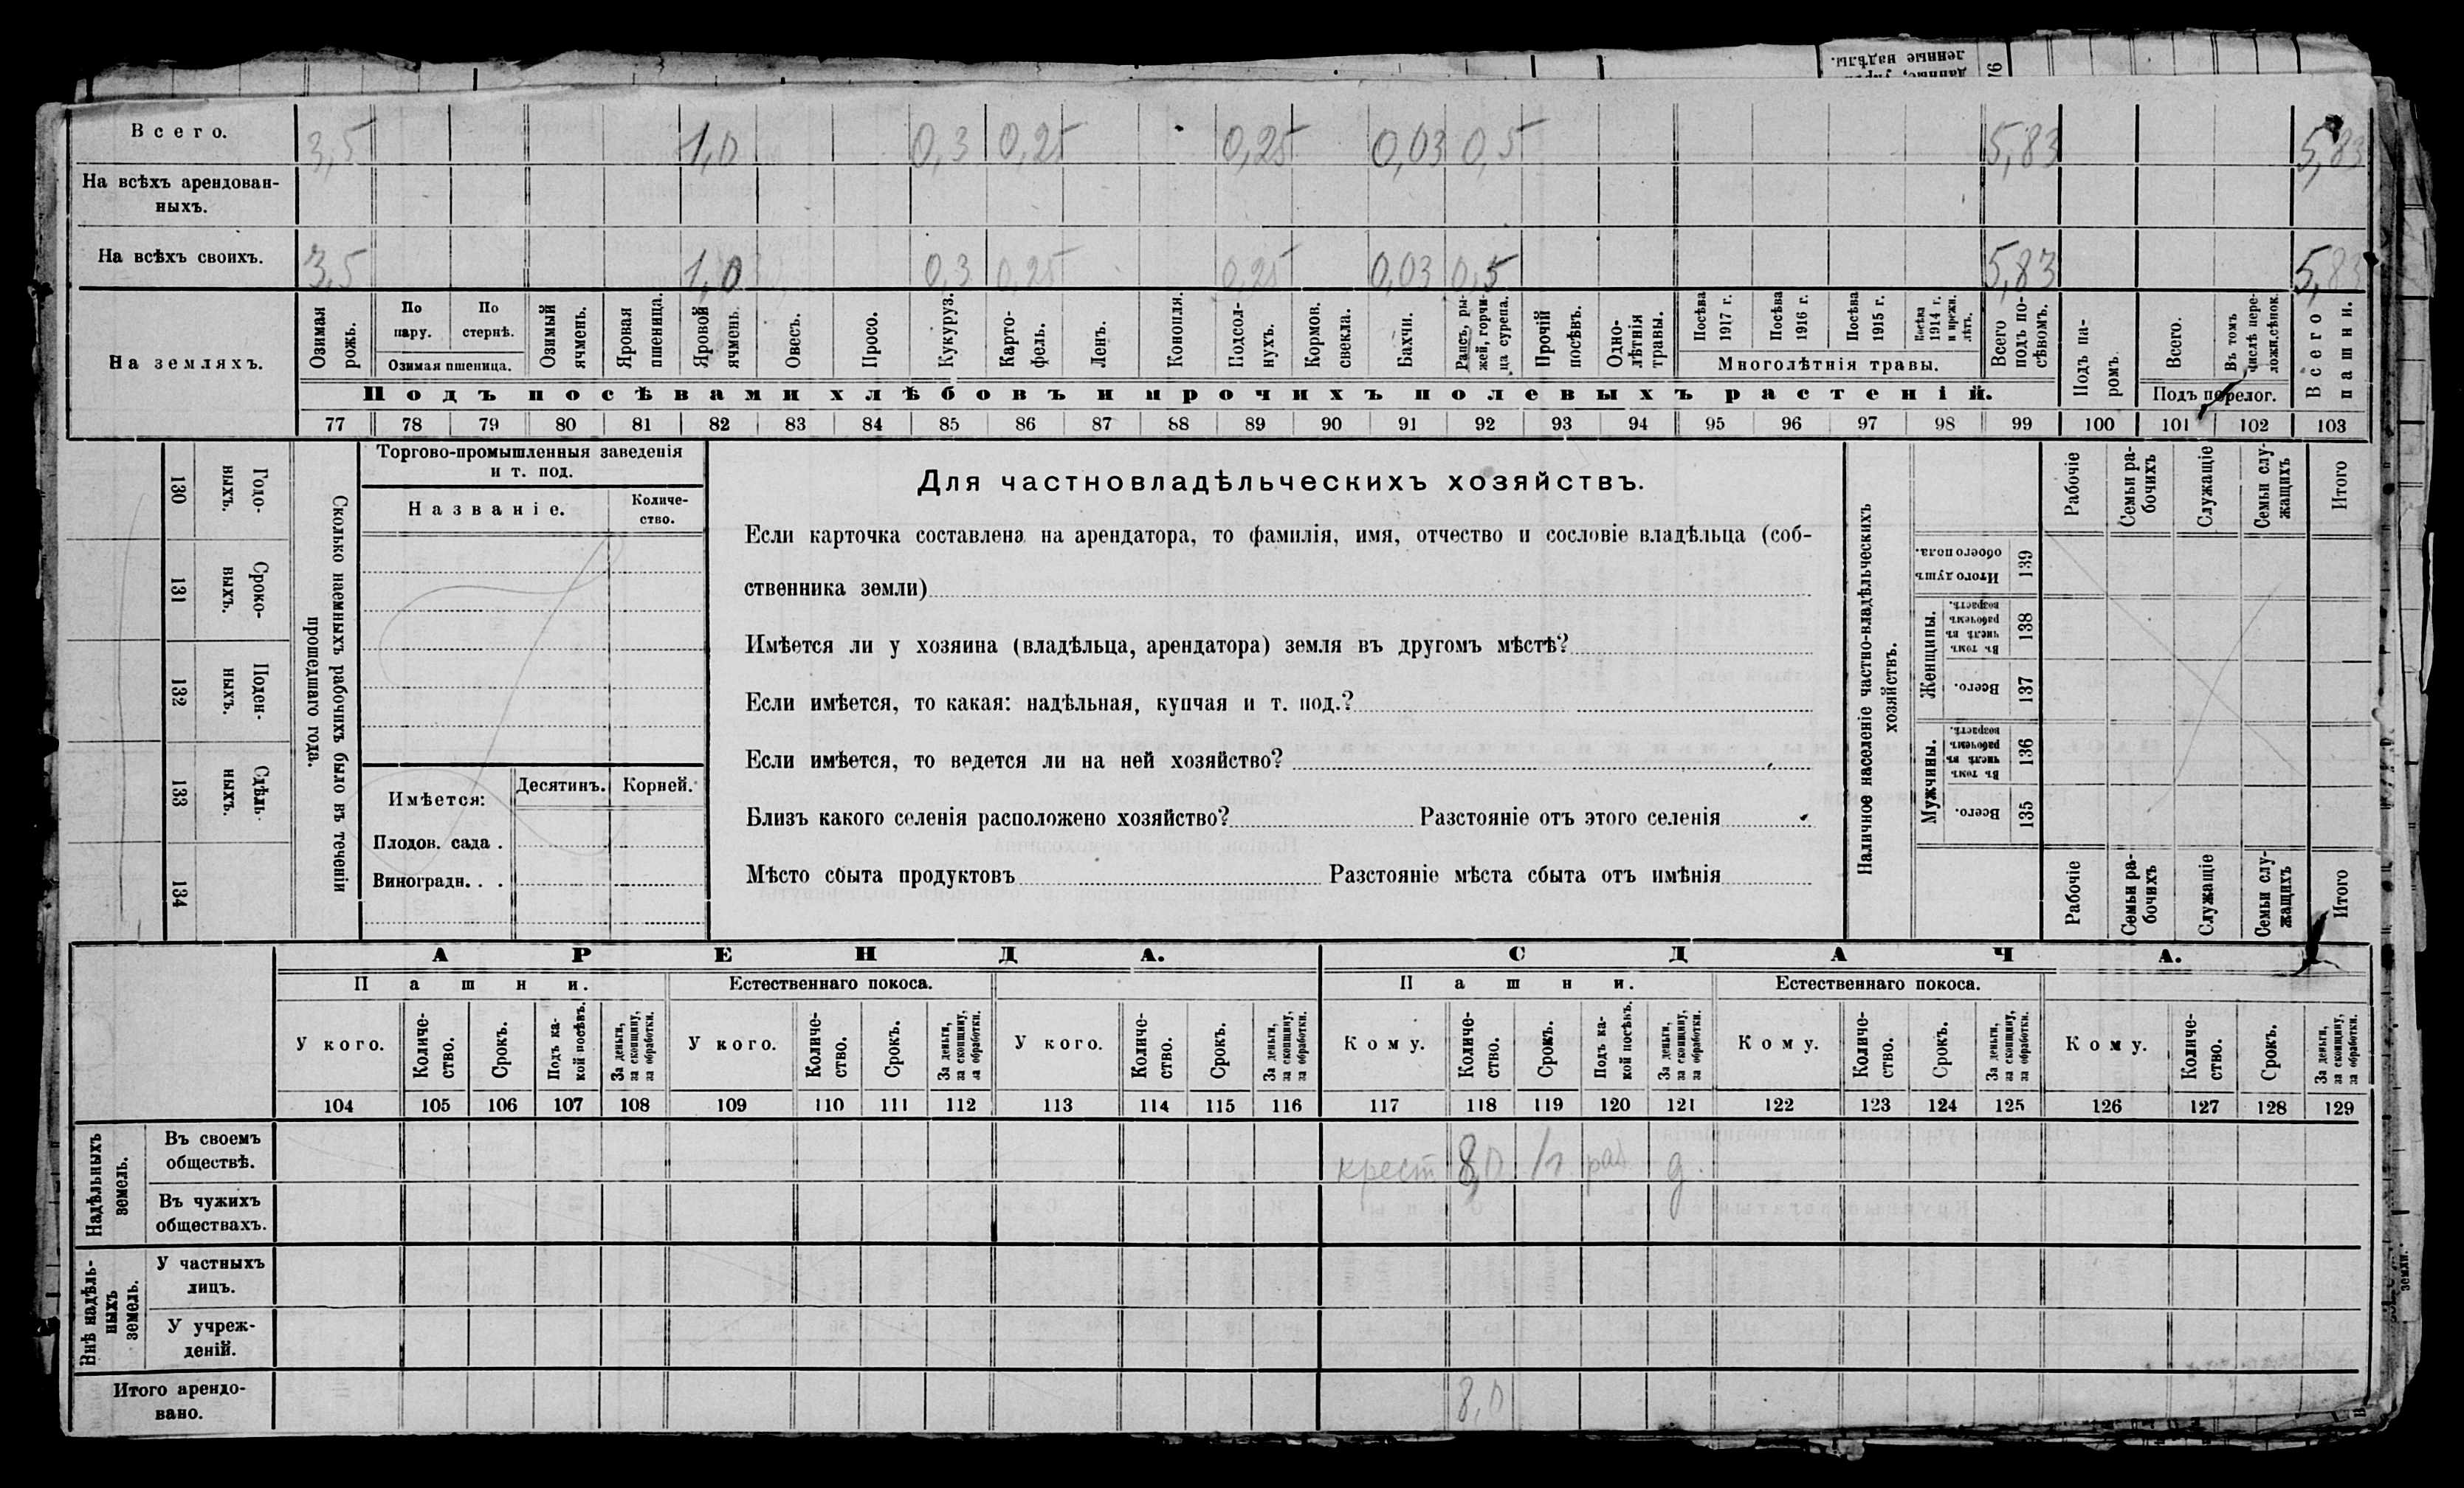 ленные надѣлы.
В с е г о. 3,5 1,0 0,3 0,25 0,25 0,03 0,5 5,83 5,83
На всѣхъ арендован-
ныхъ.
На всѣхъ своихъ. 3,5 1,0 0,3 0,25 0,25 0,03 0,5 5,83 5,83
На земляхъ.
Озимая рожь.
По пару.
По стернѣ.
Озимая пшеница.
Озимый ячмень.
Яровая пшеница.
Яровой ячмень.
Овесъ.
Просо.
Кукуруз.
Карто-
фель.
Ленъ.
Конопля.
Подсол-
нухъ.
Кормов.
свекла.
Бахчи.
Рапсъ, ры-
жей, горчи-
ца сурепа.
Прочій посѣвъ.
Одно-
лѣтнія
травы.
Посѣва 1917 г.
Посѣва 1916 г.
Посѣва 1915 г.
Посѣва 1914 г. и прежн. лѣтъ.
Многолѣтнія травы.
Всего
подъ по-
сѣвомъ.
Подъ па-
ромъ.
Всего.
Въ томъ
числѣ пере-
ложн.сѣнок.
Подъ перелог.
Всего
пашни.
Подъ посѣвами хлѣбовъ и прочихъ полевыхъ растеній.
77 78 79 80 81 82 83 84 85 86 87 88 89 90 91 92 93 94 95 96 97 98 99 100 101 102 103
Сколько наемныхъ рабочихъ было въ теченіи
прошедшаго года.
Годо-
выхъ.
130
Сроко-
выхъ.
131
Поден-
ныхъ.
132
Сдѣль-
ныхъ.
133
134
Торгово-промышленныя заведенія
и т. под.
Названіе.
Количе-
ство.
Имѣется:
Десятинъ.
Корней.
Плодов. сада .
Виноградн. . .
Для частновладѣльческихъ хозяйствъ.
Если карточка составлена на арендатора, то фамилія, имя, отчество и сословіе владѣльца (соб-
ственника земли)
Имѣется ли у хозяина (владѣльца, арендатора) земля въ другомъ мѣстѣ?
Если имѣется, то какая: надѣльная, купчая и т. под.?
Если имѣется, то ведется ли на ней хозяйство?
Близъ какого селенія расположено хозяйство? Разстояніе отъ этого селенія
Мѣсто сбыта продуктовъ Разстояніе мѣста сбыта отъ имѣнія
Наличное населеніе частно-владѣльческихъ
хозяйствъ.
Рабочіе
Семьи ра-
бочихъ
Служащіе
Семьи слу-
жащихъ
Итого
Итого душъ
обоего пола.
139
Женщины.
Въ томъ
числѣ въ
рабочемъ
возрастѣ.
138
Всего.
137
Мужчины.
Въ томъ
числѣ въ
рабочемъ
возрастѣ.
136
Всего.
135
Рабочіе
Семьи ра-
бочихъ
Служащіе
Семьи слу-
жащихъ
Итого
АРЕНДА.
СДАЧА.
Пашни.
Естественнаго покоса.
Пашни.
Естественнаго покоса.
У кого.
Количе-
ство.
Срокъ.
Подъ ка-
кой посѣвъ.
За деньги,
за скопщину,
за обработки.
У кого.
Количе-
ство.
Срокъ.
За деньги,
за скопщину,
за обработки.
У кого.
Количе-
ство.
Срокъ.
За деньги,
за скопщину,
за обработки.
Кому.
Количе-
ство.
Срокъ.
Подъ ка-
кой посѣвъ.
За деньги,
за скопщину,
за обработки.
Кому.
Количе-
ство.
Срокъ.
За деньги,
за скопщину,
за обработки.
Кому.
Количе-
ство.
Срокъ.
За деньги,
за скопщину,
за обработки.
104 105 106 107 108 109 110 111 112 113 114 115 116 117 118 119 120 121 122 123 124 125 126 127 128 129
Надѣльныхъ
земель.
Въ своемъ
обществѣ.
крест 8,0 д.
Въ чужихъ
обществахъ.
Внѣ надѣль-
ныхъ
земель.
У частныхъ
лицъ.
У учреж-
деній.
Итого арендо-
вано.
8,0